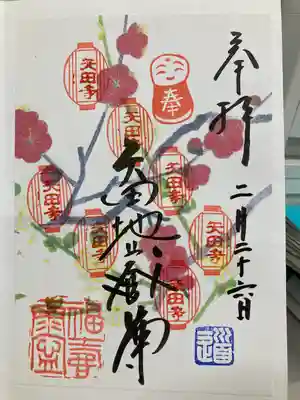 奉拝
二月二十六日
矢田地蔵尊
奉
矢田寺
矢田寺
矢田寺
矢田寺
矢田寺
矢田寺
矢田寺